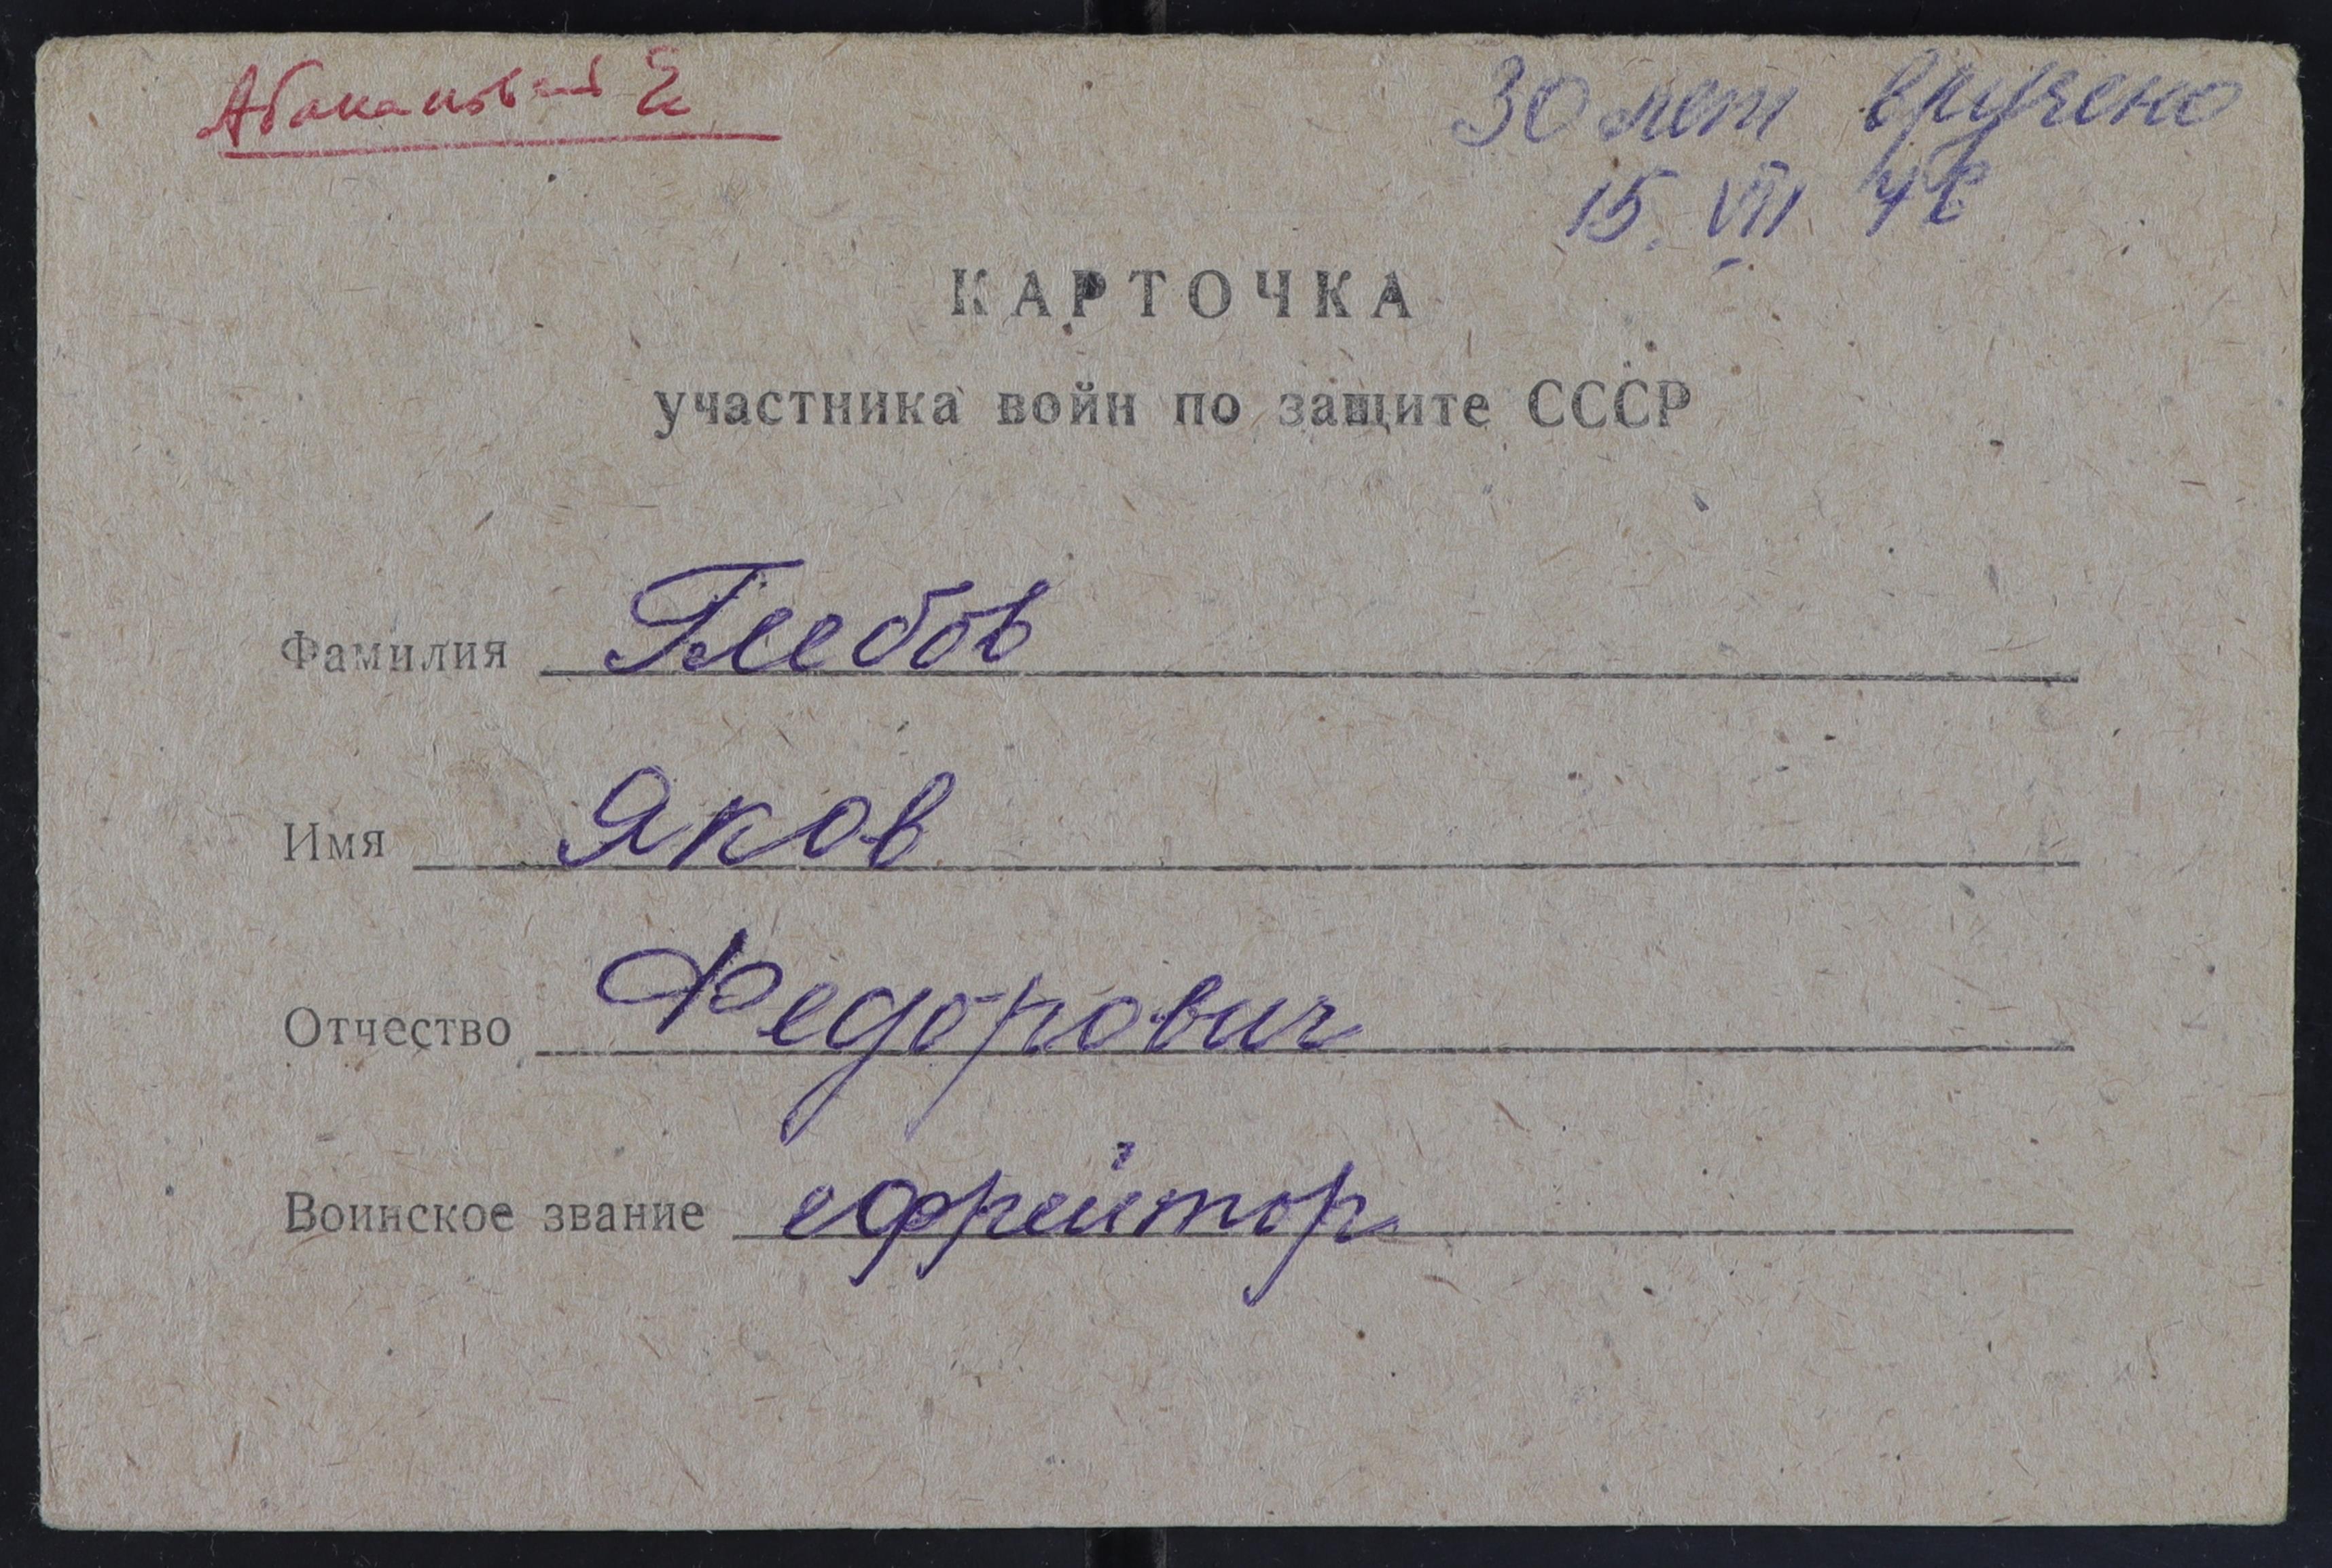 30 лет вручено
15. VII 48
КАРТОЧКА
участника войн по защите СССР
Фамилия Глебов
Имя Яков
Отчество Федорович
Воинское звание ефрейтор